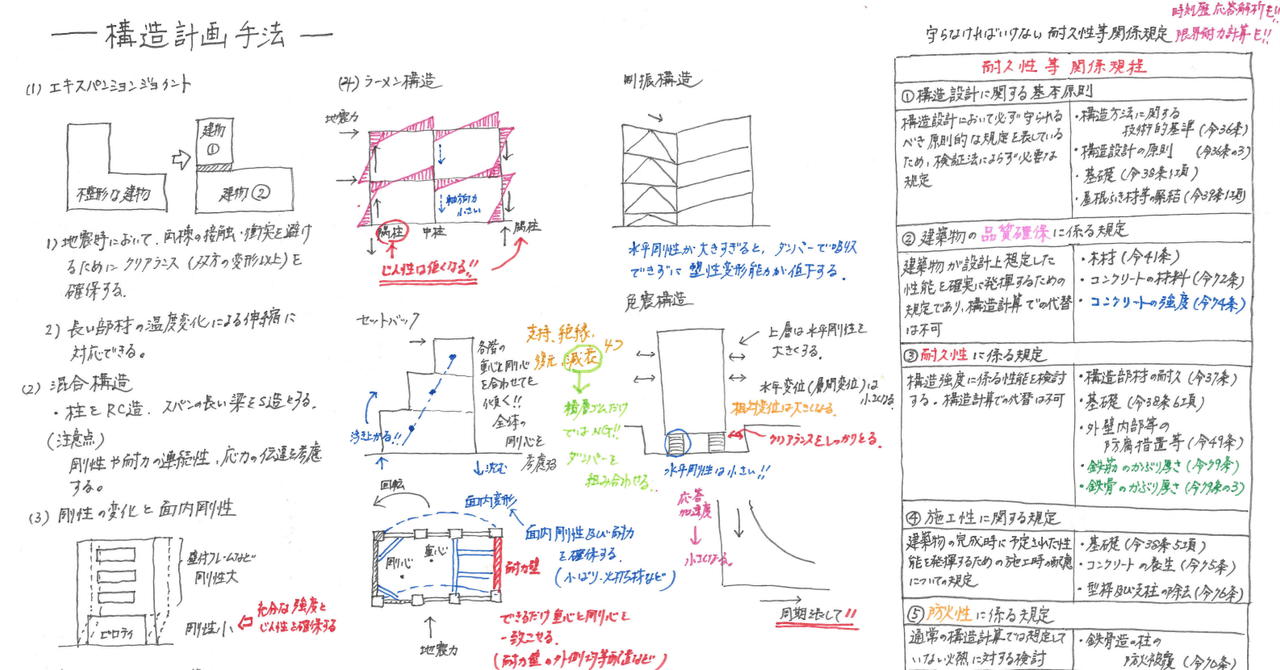 ― 構造計画手法 ―
(1) エキスパンションジョイント
不整形な建物
建物
①
建物②
1) 地震時において、両棟の接触・衝突を避け
るためにクリアランス(双方の変形以上)を
確保する。
2) 長い部材の温度変化による伸縮に
対応できる。
(2) 混合構造
・柱をRC造、スパンの長い梁をS造とする。
(注意点)
剛性や耐力の連続性、応力の伝達を考慮
する。
(3) 剛性の変化と面内剛性
壁付フレームなど
剛性大
ピロティ
剛性小
充分な強度と
じん性を確保する
(4) ラーメン構造
地震力
軸方向力
小さい
隅柱
中柱
隅柱
じん性は低くなる!!
セットバック
各階の
重心と剛心
を合わせても
傾く!!
全体の
剛心を
考慮する
浮き上がる!!
沈む
回転
面内変形
面内剛性及び耐力
を確保する。
(小ばり・火打ち材など)
剛心
重心
耐力壁
地震力
できるだけ重心と剛心を
一致させる。
(耐力壁の外側均等配置など)
制振構造
水平剛性が大きすぎると、ダンパーで吸収
できずに塑性変形能力が低下する。
免震構造
支持、絶縁、
復元、減衰 4つ
積層ゴムだけ
ではNG!!
ダンパーを
組み合わせる。
上層は水平剛性を
大きくする。
水平変位(層間変位)は
小さくなる。
相対変位は大きくなる。
クリアランスをしっかりとる。
水平剛性は小さい!!
応答
加速度
小さくなる。
周期が長くて!!
時刻歴応答解析も!!
守らなければいけない耐久性等関係規定 限界耐力計算も!!
耐久性等関係規程
①構造設計に関する基本原則
構造設計において必ず守られる
べき原則的な規定を表している
ため、検証法によらず必要な
規定
・構造方法に関する
技術的基準(令36条)
・構造設計の原則 (令36条の3)
・基礎(令38条1項)
・屋根ふき材等の緊結(令39条1項)
②建築物の品質確保に係る規定
建築物が設計上想定した
性能を確実に発揮するための
規定であり、構造計算での代替
は不可
・木材(令41条)
・コンクリートの材料(令72条)
・コンクリートの強度(令74条)
③耐久性に係る規定
構造強度に係る性能を検討
する。構造計算での代替は不可
・構造部材の耐久(令37条)
・基礎(令38条6項)
・外壁内部等の
防腐措置等(令49条)
・鉄筋のかぶり厚さ(令79条)
・鉄骨のかぶり厚さ(令79条の3)
④施工性に関する規定
建築物の完成時に予定された性
能を発揮するための施工時の配慮
についての規定
・基礎(令38条5項)
・コンクリートの養生(令75条)
・型枠及び支柱の除去(令76条)
⑤防火性に係る規定
通常の構造計算では想定して
いない火熱に対する検討
・鉄骨造の柱の
防火被覆(令70条)